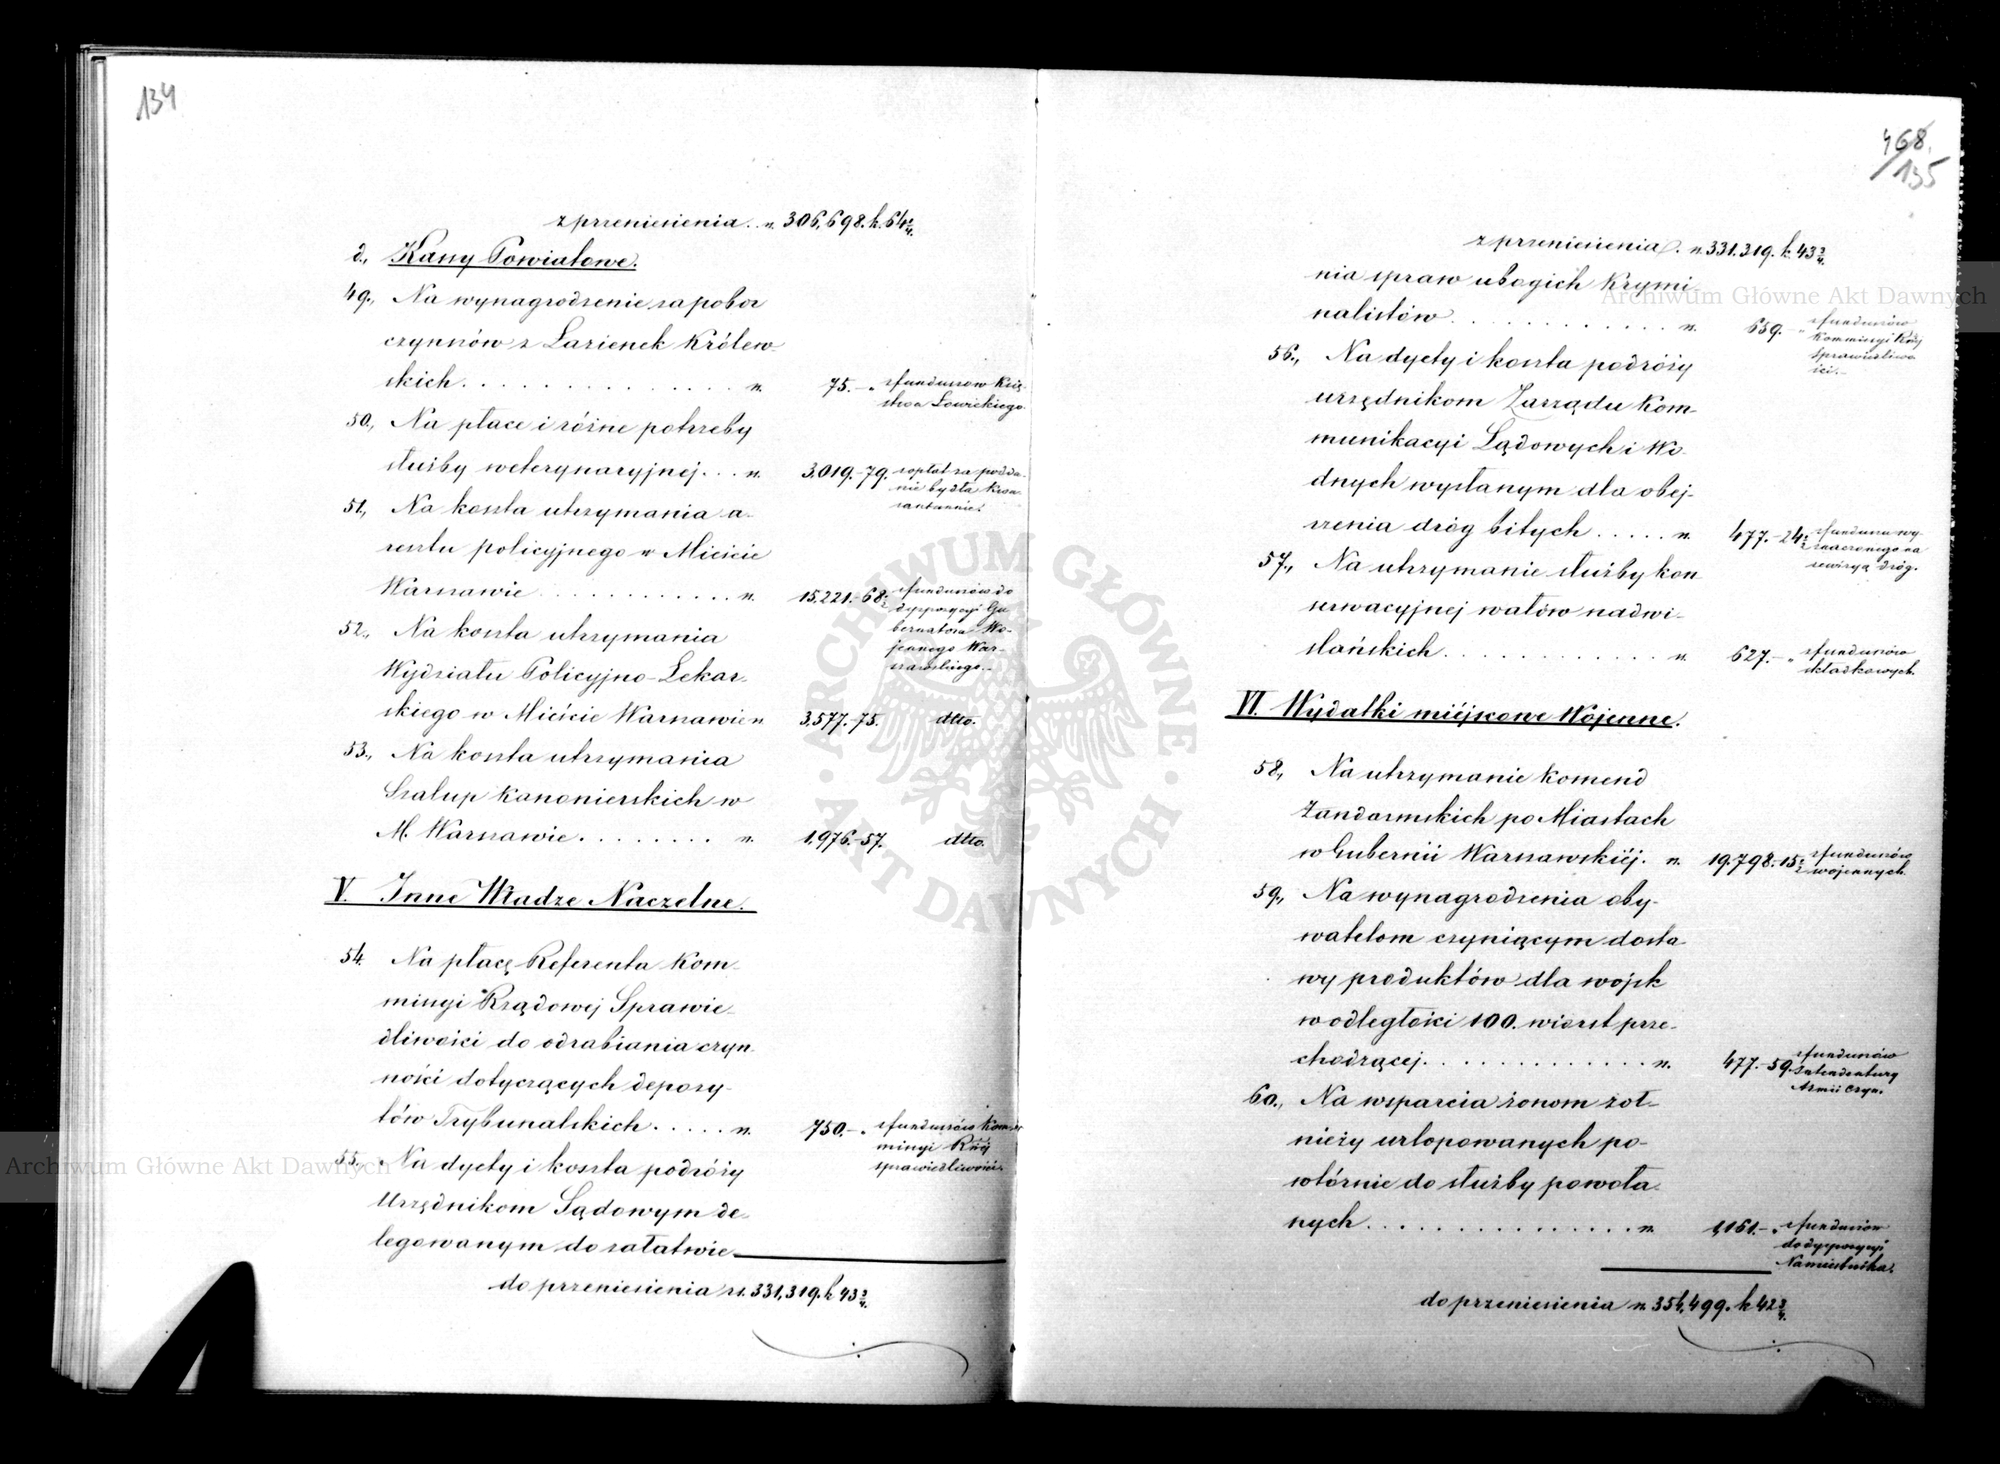 134
z przeniesienia . . rs. 306,698. k. 64 2/4.
d., Kassy Powiatowe.
49., Na wynagrodzenie za pobór
czynszów z Łazienek Królew-
skich . . . . . . . . . . . . . . rs. 75. — „ z funduszów Księ-
stwa Łowickiego.
50., Na płace i różne potrzeby
służby weterynaryjnej . . . rs. 3,019. — 79. z opłat za podda-
nie bydła kwa-
rantannie.
51., Na koszta utrzymania a-
resztu policyjnego w Mieście
Warszawie . . . . . . . . . . . . rs. 15,221. — 68 1/2 z funduszów do
dyspozycyi Gu-
bernatora Wo-
jennego War-
szawskiego.
52., Na koszta utrzymania
Wydziału Policyjno-Lekar-
skiego w Mieście Warszawie rs. 3,577. — 75. dtto.
53., Na koszta utrzymania
Szalup Kanonierskich w
M. Warszawie . . . . . . . . rs. 1,976. — 57. dtto.
V. Inne Władze Naczelne.
54. Na płacę Referenta Kom-
missyi Rządowej Sprawie-
dliwości do odrabiania czyn-
ności dotyczących depozy-
tów Trybunalskich . . . . . rs. 750. — „ z funduszów Kom-
missyi Rząj
sprawiedliwości.
55., Na dyety i koszta podróży
Urzędnikom Sądowym de-
legowanym do załatwie-
do przeniesienia rs. 331,319. k 43 3/4.
468.
135
z przeniesienia . rs. 331,319. k. 43 3/4.
nia spraw ubogich Krymi-
nalistów . . . . . . . . . . . . rs. 659. — „ z funduszów
Kommissyi Rząj
Sprawiedliwo-
ści. —
56., Na dyety i koszta podróży
urzędnikom Zarządu Kom-
munikacyi Lądowych i Wo-
dnych wysłanym dla obej-
rzenia dróg bitych . . . . . rs. 477. — 24 1/2 z funduszu wy-
znaczonego na
rewizyą dróg.
57., Na utrzymanie służby kon
serwacyjnej wałów nadwi-
ślańskich . . . . . . . . . . . . rs. 627. — „ z funduszów
składkowych.
VI. Wydatki miejscowe Wojenne.
58., Na utrzymanie komend
Żandarmskich po Miastach
w Gubernii Warszawskiéj. rs. 19,798. — 15 1/2 z funduszów
wojennych.
59., Na wynagrodzenia oby-
watelom czyniącym dosta-
wy produktów dla wojsk
w odległości 100. wiorst prze-
chodzącej . . . . . . . . . . . . rs. 477. — 59. z funduszów
Intendentury
Armii Czyn.
60., Na wsparcia żonom żoł-
nierzy urlopowanych po-
wtórnie do służby powoła-
nych . . . . . . . . . . . . . . . rs. 1,161. — „ z funduszów
do dyspozycyi
Namiestnika.
do przeniesienia rs. 354,499. k 42 3/4.
ARCHIWUM GŁÓWNE
AKT DAWNYCH
Archiwum Główne Akt Dawnych
Archiwum Główne Akt Dawnych